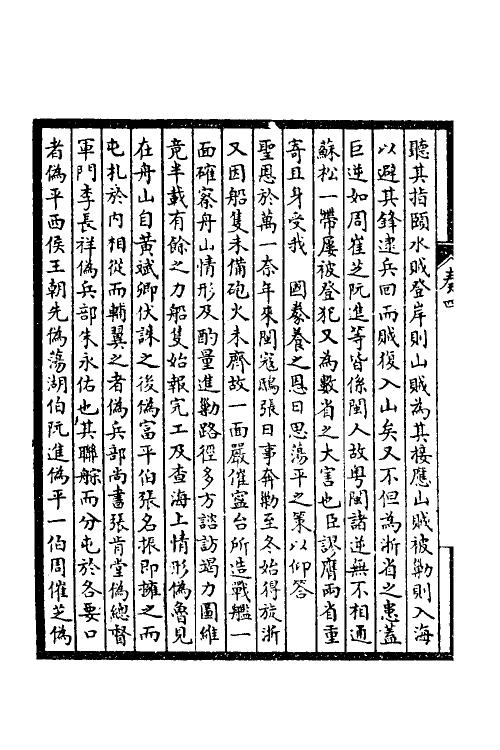 聽其指頤水賊登岸則山賊為其接應山賊被勦則入海
以避其鋒逮兵回而賊復入山矣又不但為浙省之患蓋
巨逆如周崔芝阮進等皆係閩人故粤閩諸逆無不相通
蘇松一帶屢被登犯又為數省之大害也臣謬膺兩省重
寄且身受我　國豢養之恩日思蕩平之策以仰答
聖恩於萬一奈年來閩寇鴟張日事奔勦至冬始得旋浙
又因船隻未備砲火未齊故一面嚴催寧台所造戰艦一
面確察舟山情形及酌量進勦路徑多方諮訪竭力圖維
竟半載有餘之力船隻始報完工及查海上情形偽魯見
在舟山自黃斌卿伏誅之後偽富平伯張名振即擁之而
屯扎於内相從而輔翼之者偽兵部尚書張肯堂偽總督
軍門李長祥偽兵部朱永佑也其聯䑸而分屯於各要口
者偽平西侯王朝先偽蕩湖伯阮進偽平一伯周催芝偽
奏四